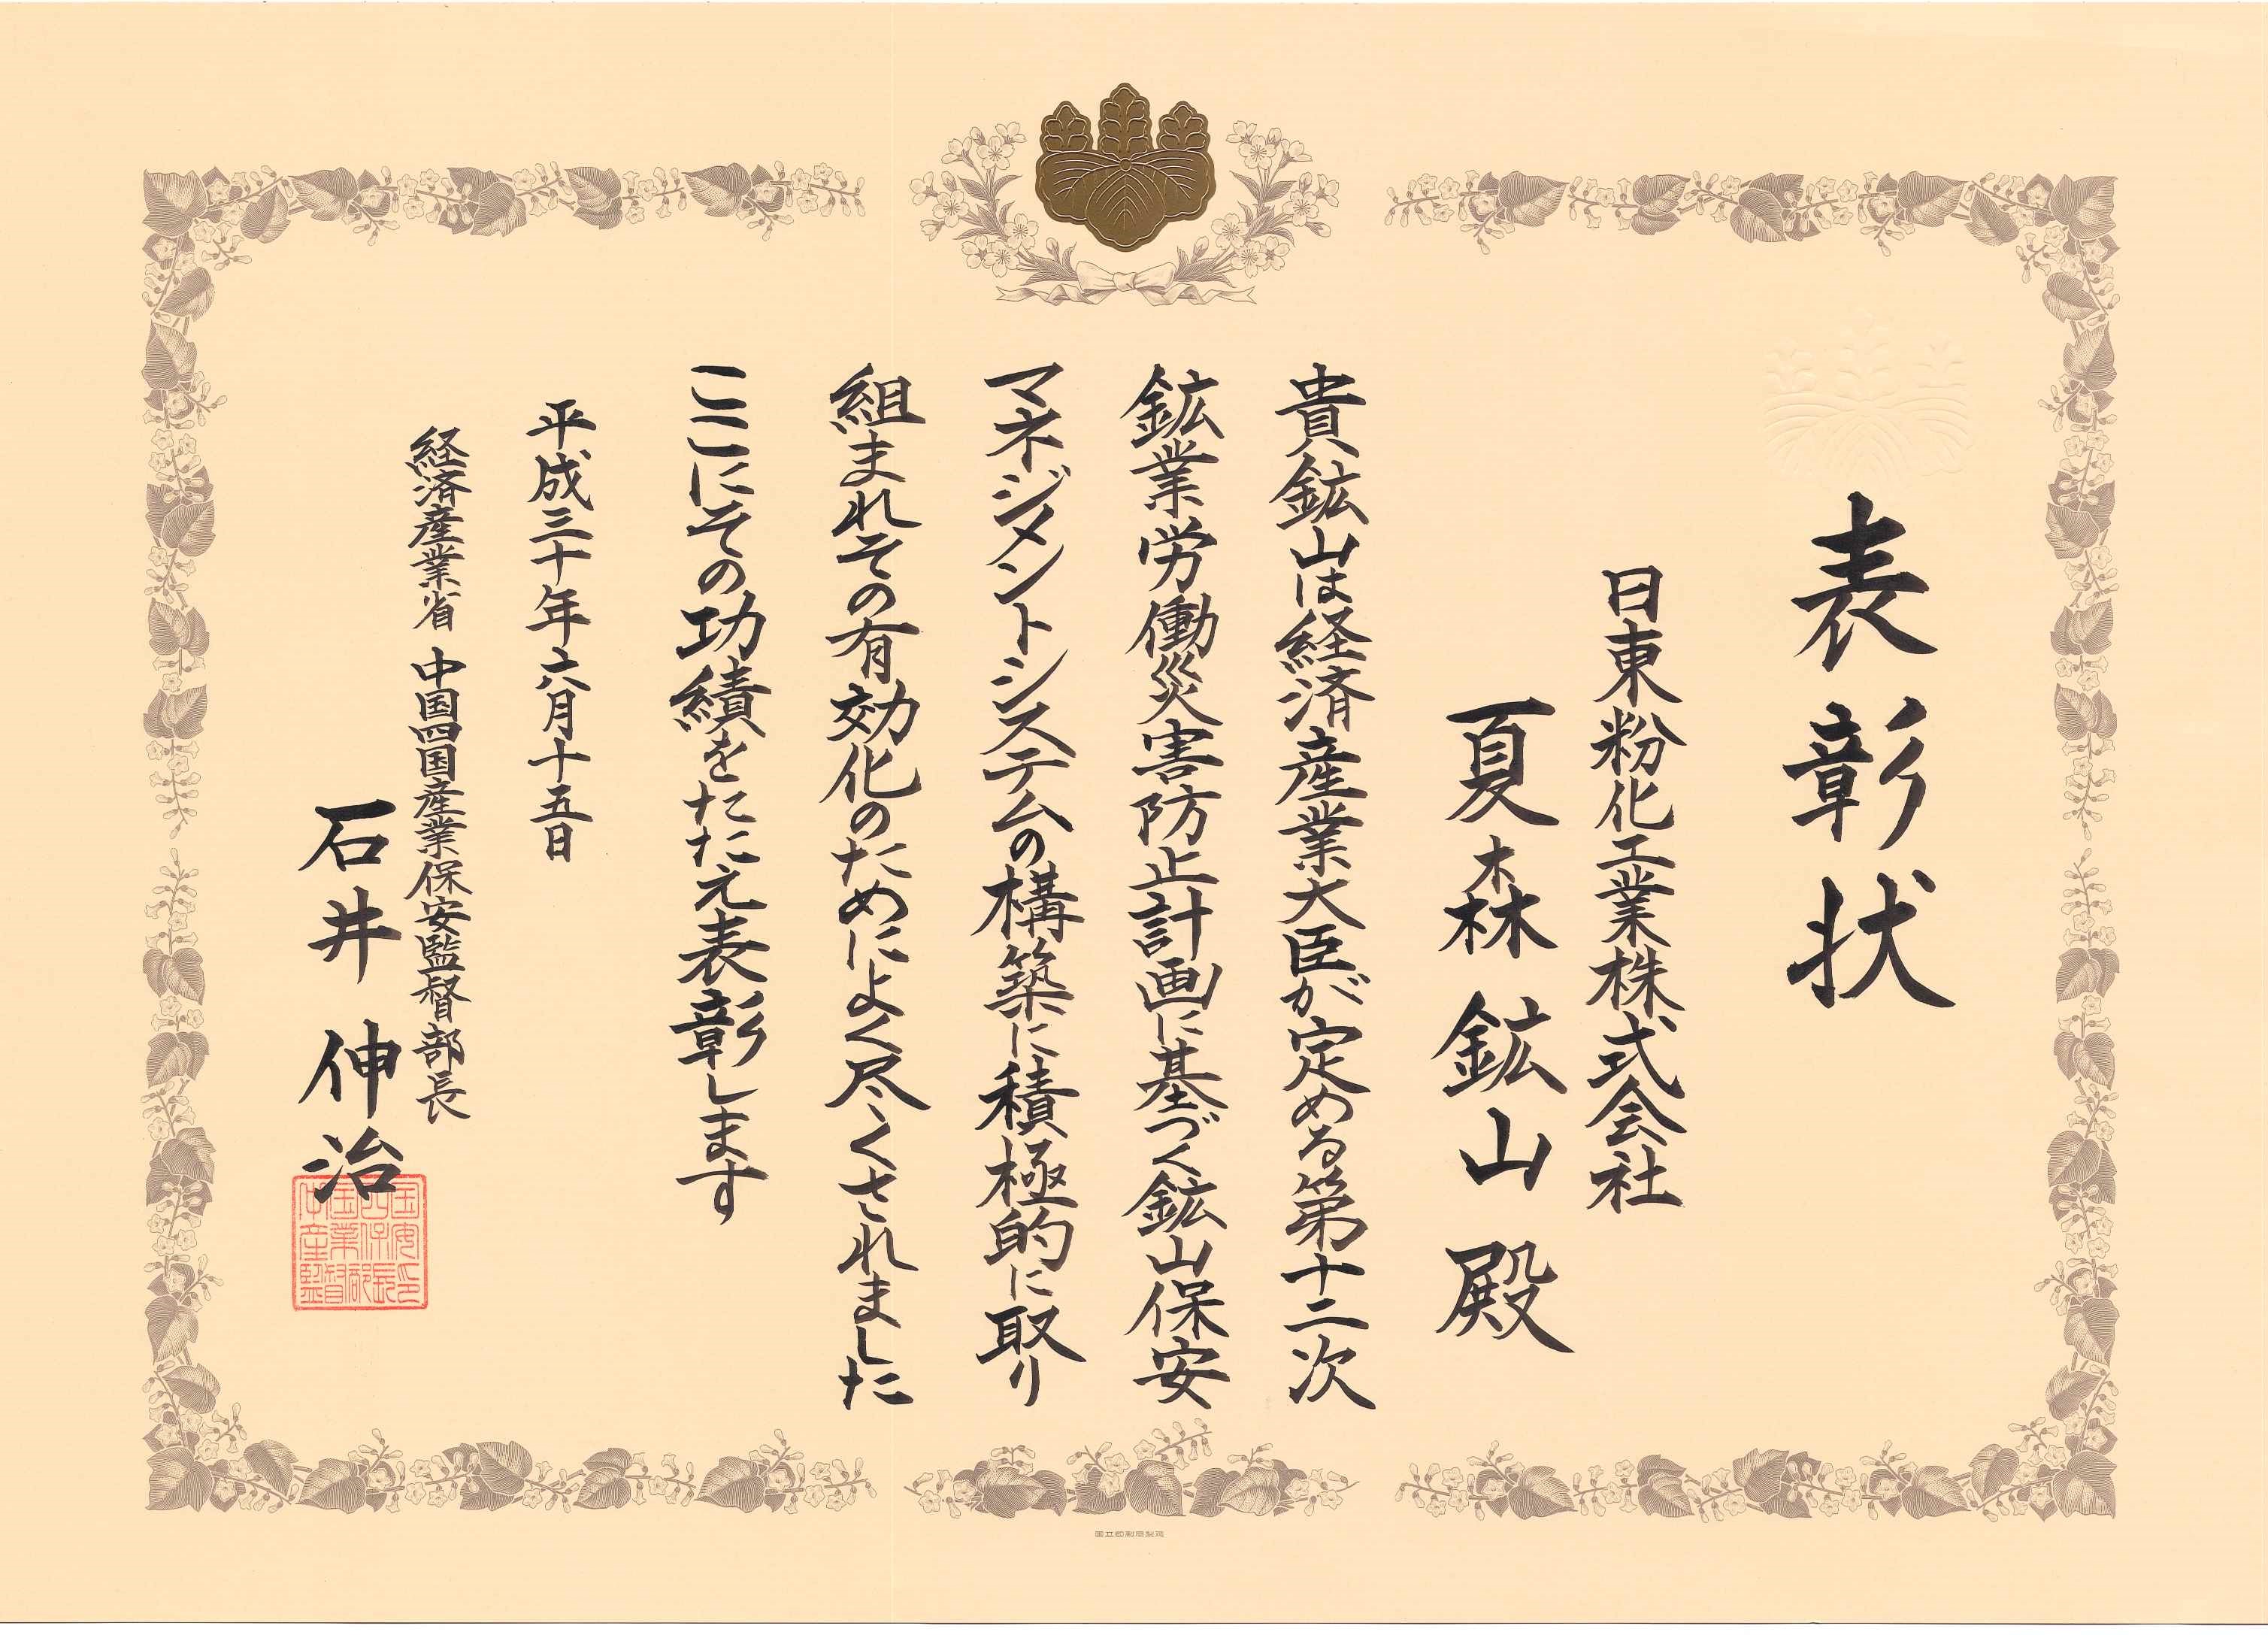 表彰状
日東粉化工業株式会社
夏森鉱山殿
貴鉱山は経済産業大臣が定める第十二次
鉱業労働災害防止計画に基づく鉱山保安
マネジメントシステムの構築に積極的に取り
組まれその有効化のためによく尽くされました
ここにその功績をたたえ表彰します
平成三十年六月十五日
経済産業省 中国四国産業保安監督部長
石井伸治
中国四国産業保安監督部長印
国立印刷局製造